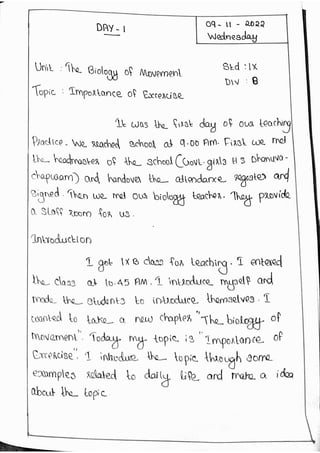 DAY - 1
09 - 11 - 2022
Wednesday
Unit : The Biology of Movement
Std : IX
Div : B
Topic : Importance of Excercise
It was the first day of our teaching
Practice. We reached school at 9.00 Am. First we met
the headmaster of the school (Govt. girls H S Dhanuva-
chapuram) and handover the attendance register and
Signed. Then we met our biology teacher. They provide
a Staff room for us.
Introduction
I got IX B class for teaching. I entered
the class at 10.45 AM. I introduce myself and
made the students to introduce themselves. I
wanted to take a new chapter "The biology of
movement". Today my topic is "Importance of
Excercise". I introduce the topic through some
examples related to daily life and make a idea
about the topic